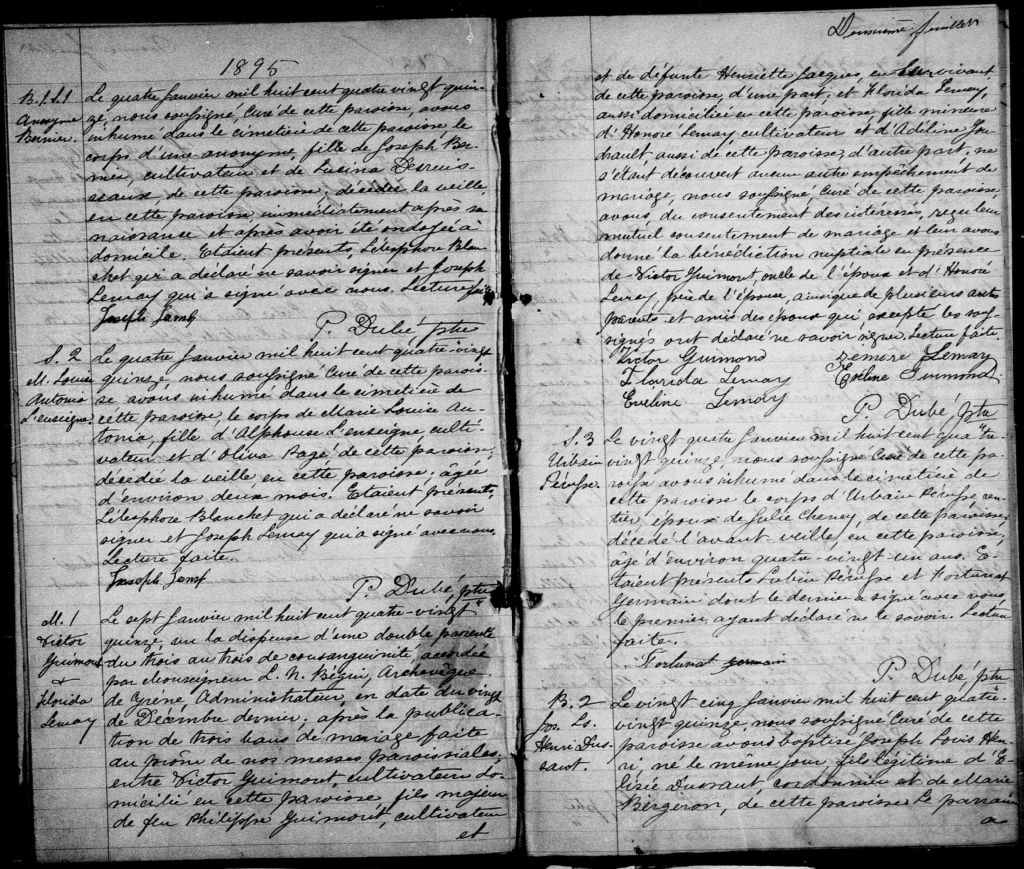 1895
B.1 S.1
Anonyme
Bernier.
Le quatre Janvier mil huit cent quatre vingt quin-
ze, nous soussigné, Curé de cette paroisse, avons
inhumé dans le cimetière de cette paroisse le
corps d'une anonyme, fille de Joseph Ber-
nier, cultivateur et de Lusina Desruis-
seaux, de cette paroisse, décédée la veille,
en cette paroisse immédiatement après sa
naissance et après avoir été ondoyée à
domicile. Etaient présents, Télesphore Blan-
chet qui a déclaré ne savoir signer et Joseph
Lemay qui a signé avec nous. Lecture faite
Joseph Lemay
P. Dubé, ptre
S. 2
M. Louise
Antonia
L'enseigne.
Le quatre Janvier mil huit cent quatre-vingt
quinze, nous soussigné Curé de cette parois-
se avons inhumé dans le cimetière de
cette paroisse, le corps de Marie Louise An-
tonia, fille d'Alphonse L'enseigne culti-
vateur et d'Oliva Pagé, de cette paroisse,
décédée la veille en cette paroisse, âgée
d'environ deux mois. Etaient présents,
Télesphore Blanchet qui a déclaré ne savoir
signer et Joseph Lemay qui a signé avec nous.
Lecture faite.
Joseph Lemay
P. Dubé, ptre
M. 1
Victor
Guimont
&
Florida
Lemay
Le sept Janvier mil huit cent quatre-vingt
quinze, vu la dispense d'une double parenté
du trois au trois de consanguinité accordée
par Monseigneur L. N. Bégin, Archevêque
de Cyrène, Administrateur, en date du vingt
de Décembre dernier; après la publica-
tion de trois bans de mariage faite
au prône de nos messes paroissiales,
entre Victor Guimont, cultivateur do-
micilié en cette paroisse, fils majeur
de feu Philippe Guimont, cultivateur
et
Deuxième feuillet
et de défunte Henriette Jacques, en leur vivant
de cette paroisse, d'une part; et Florida Lemay,
aussi domiciliée en cette paroisse, fille mineure
d'Honoré Lemay cultivateur et d'Adeline Hou-
drault, aussi de cette paroisse, d'autre part, ne
s'étant découvert aucun autre empêchement de
mariage, nous soussigné Curé de cette paroisse
avons, du consentement des intéressés, reçu leur
mutuel consentement de mariage et leur avons
donné la bénédiction nuptiale en présence
de Victor Guimont, oncle de l'époux et d'Honoré
Lemay, père de l'épouse, ainsi que de plusieurs autres
parents et amis des époux qui excepté les sous-
signés ont déclaré ne savoir signer. Lecture faite.
Victor Guimond
zemere Lemay
Florida Lemay
Eveline Guimond
Eveline Lemay
P. Dubé, ptre
S. 3
Urbain
Pérusse.
Le vingt quatre Janvier mil huit cent qua-tre
vingt quinze, nous soussigné Curé de cette pa-
roisse avons inhumé dans le cimetière de
cette paroisse le corps d'Urbain Pérusse ren-
tier, époux de Julie Cheney, de cette paroisse,
décédé l'avant veille, en cette paroisse,
âgé d'environ quatre-vingt-un ans. E-
taient présents Lubin Pérusse et Fortunat
Germain dont le dernier a signé avec nous
le premier ayant déclaré ne le savoir. Lecture
faite.
Fortunat germain
P. Dubé ptre
B. 2
Jos. Ls.
Henri Dus-
sault.
Le vingt cinq Janvier mil huit cent quatre-
vingt quinze, nous soussigné Curé de cette
paroisse avons baptisé Joseph Louis Hen-
ri, né le même jour, fils légitime d'E-
lisée Dussault cordonnier et de Marie
Bergeron, de cette paroisse. Le parrain
a